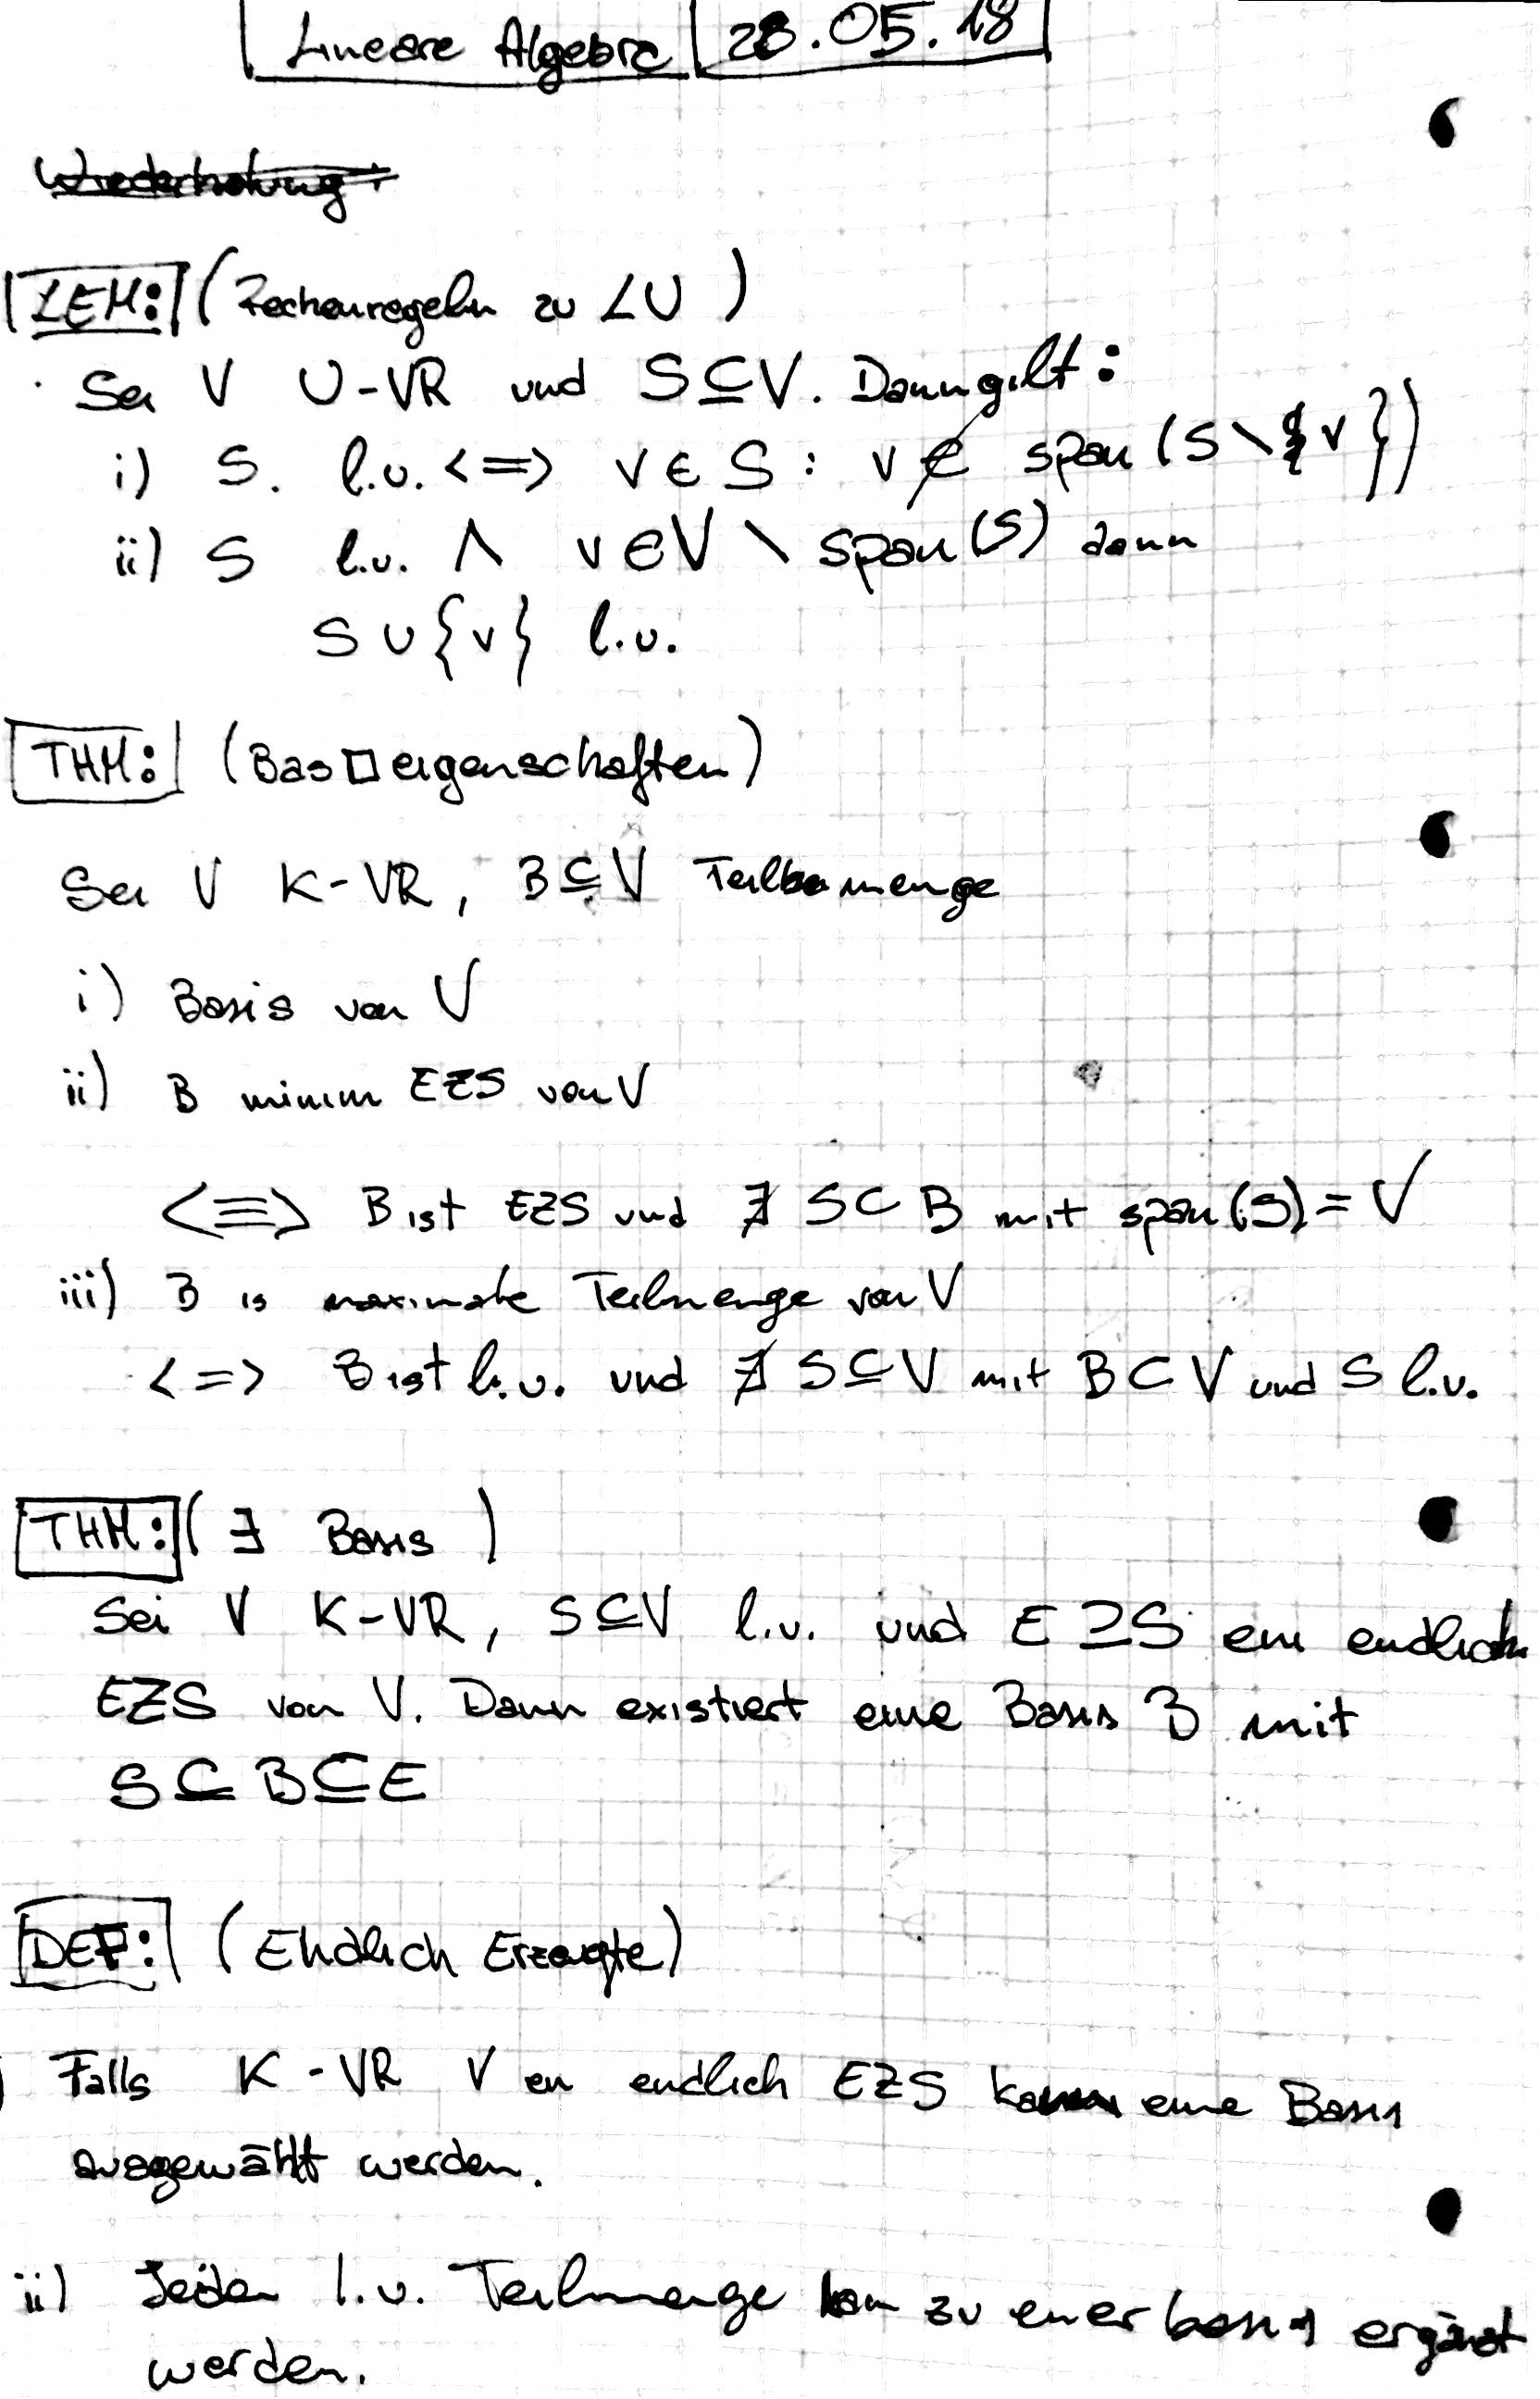 Lineare Algebra 28.05.18
Wiederholung:
LEM: (Rechenregeln zu LU)
Sei V U-VR und S⊆V. Dann gilt:
i) S. l.u. <=> v∈S: v∉ span(S\{v})
ii) S l.u. ∧ v∈V \ span(S) dann
S∪{v} l.u.
THM: (Bas□eigenschaften)
Sei V K-VR, B⊆V Teilmenge
i) Basis von V
ii) B minim EZS von V
<=> B ist EZS und ∄ S⊂B mit span(S)=V
iii) B is maximale Teilmenge von V
<=> B ist l.u. und ∄ S⊆V mit B⊂V und S l.u.
THM: (∃ Basis)
Sei V K-VR, S⊆V l.u. und E⊇S ein endlich
EZS von V. Dann existiert eine Basis B mit
S⊆B⊆E
DEF: (Endlich Erzeugte)
Falls K-VR V en endlich EZS kann eine Basis
ausgewählt werden.
ii) Jeden l.u. Teilmenge kann zu einer basis ergänzt
werden.